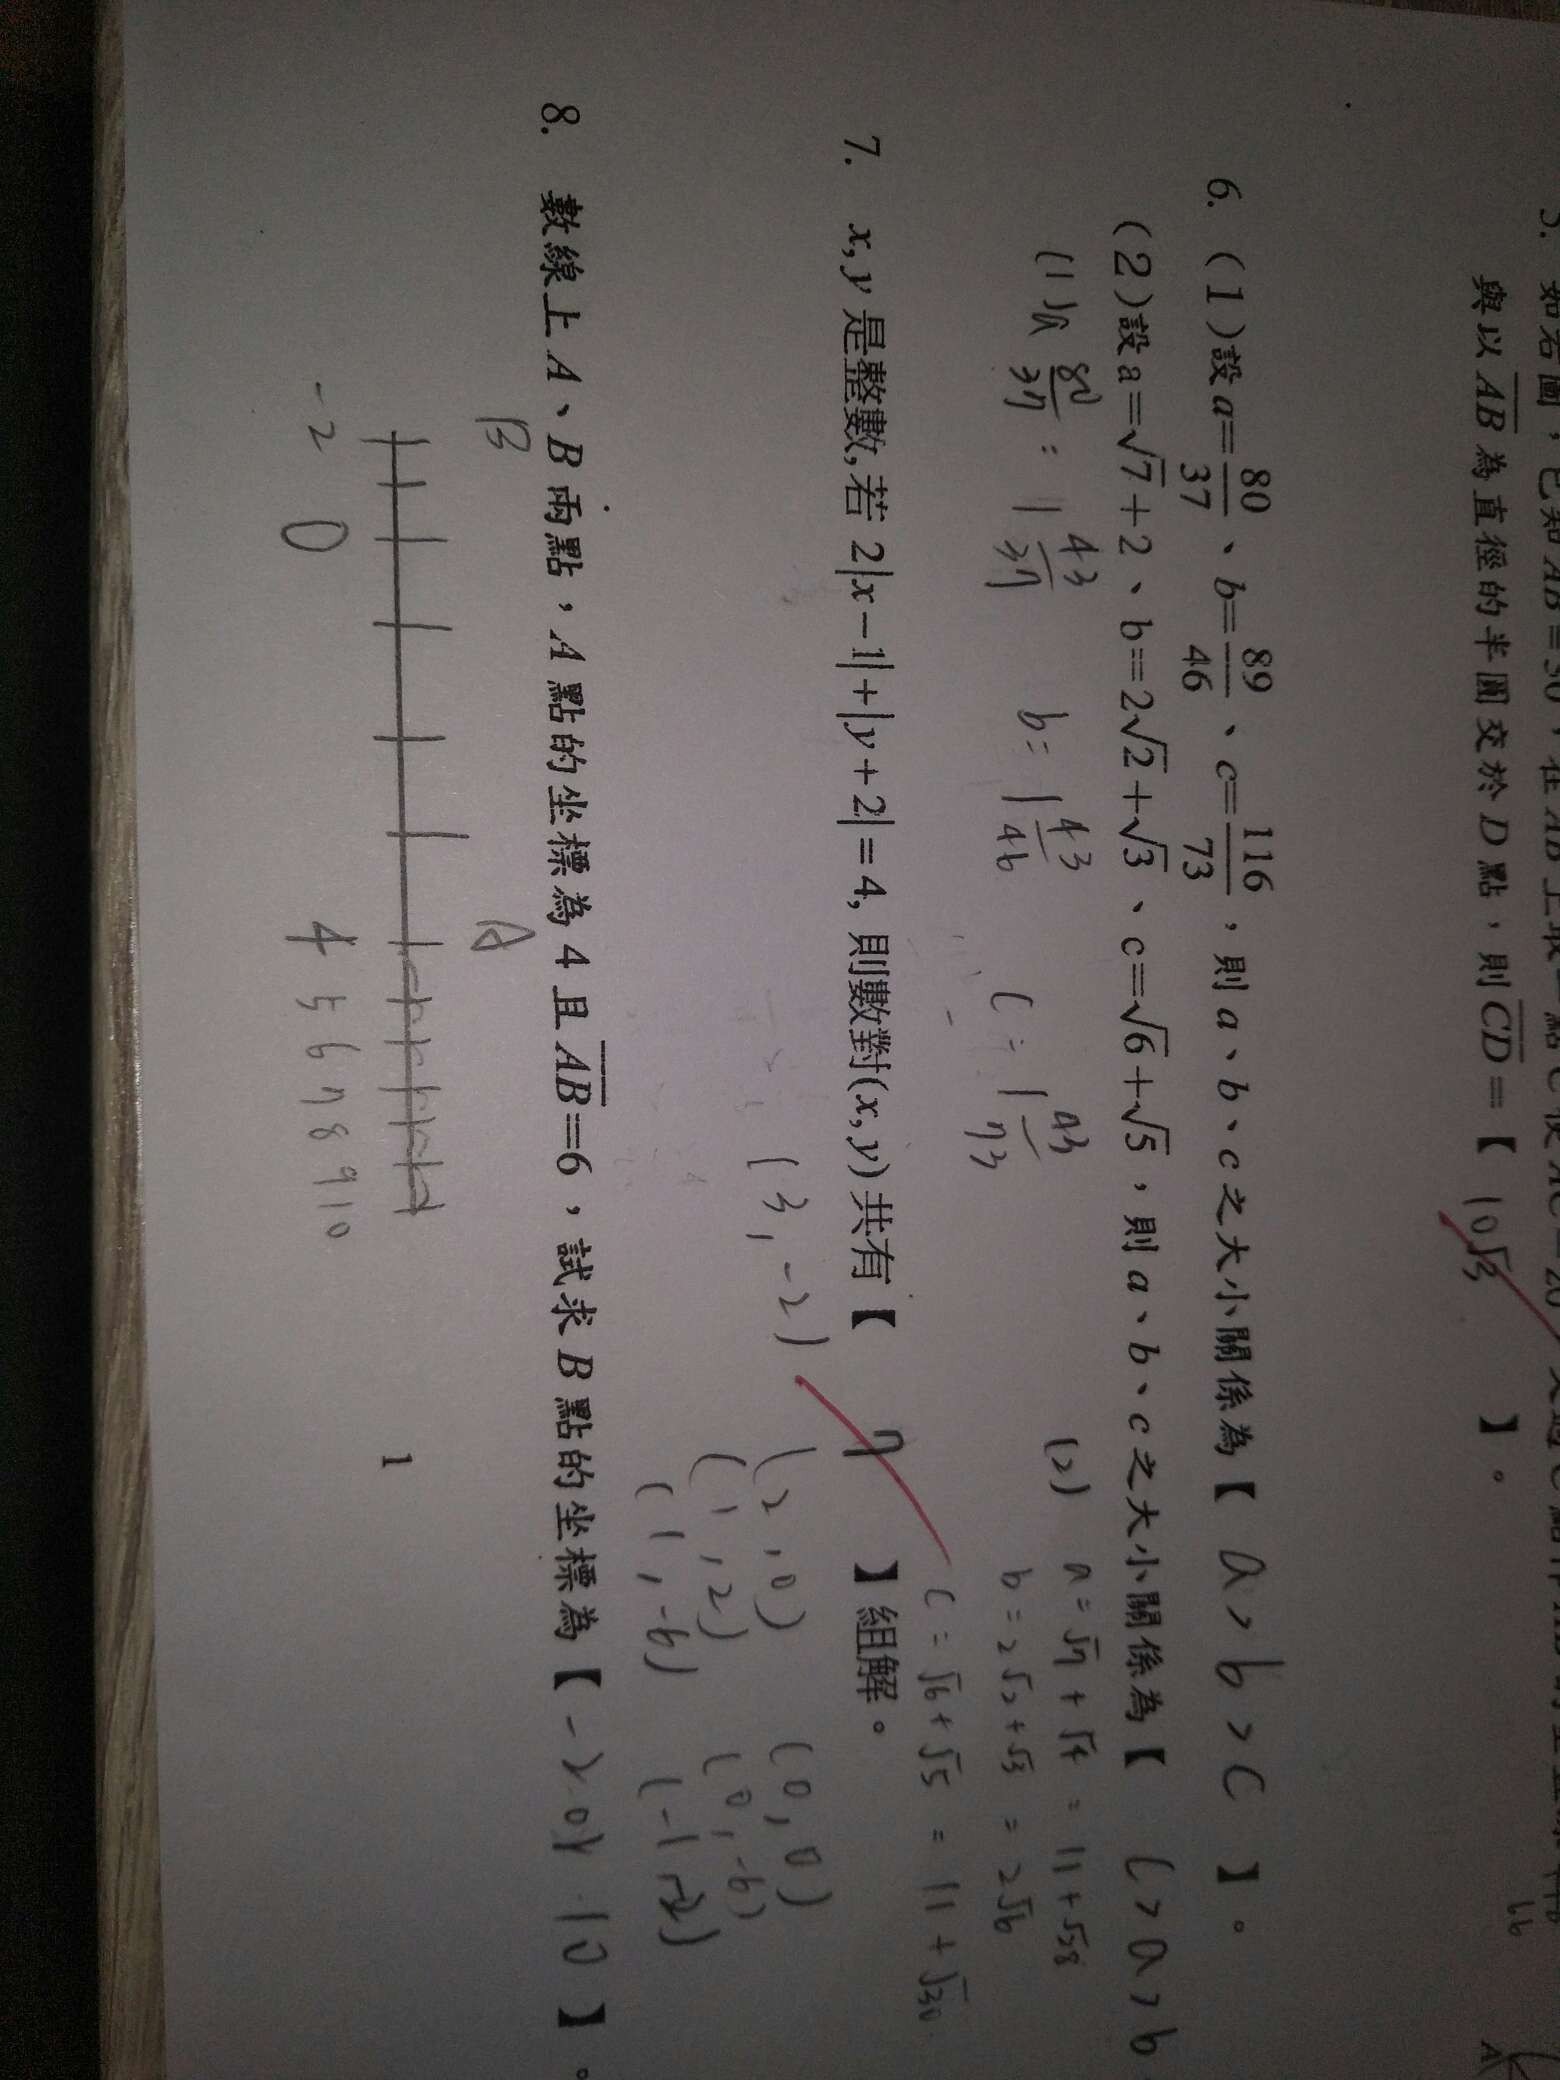 與以AB為直徑的半圓交於D點，則CD=【 10√3 】。
6. (1)設a=80/37、b=89/46、c=116/73，則a、b、c之大小關係為【 a>b>c 】。
(2)設a=√7+2、b=2√2+√3、c=√6+√5，則a、b、c之大小關係為【 c>a>b
(1) a 80/37 = 1 43/37 b=1 43/46 c=1 43/73
(2) a=√7+√4 = 11+√28
b=2√2+√3 = 2√6
c=√6+√5 = 11+√30
7. x,y是整數,若2|x−1|+|y+2|=4, 則數對(x,y)共有【 7 】組解。
(3,-2) (2,0) (0,0)
(1,2) (0,-6)
(1,-6) (-1,-2)
8. 數線上A、B兩點，A點的坐標為4且AB=6，試求B點的坐標為【 -2or 10 】。
B A
-2 0 4 5 6 7 8 9 10
1